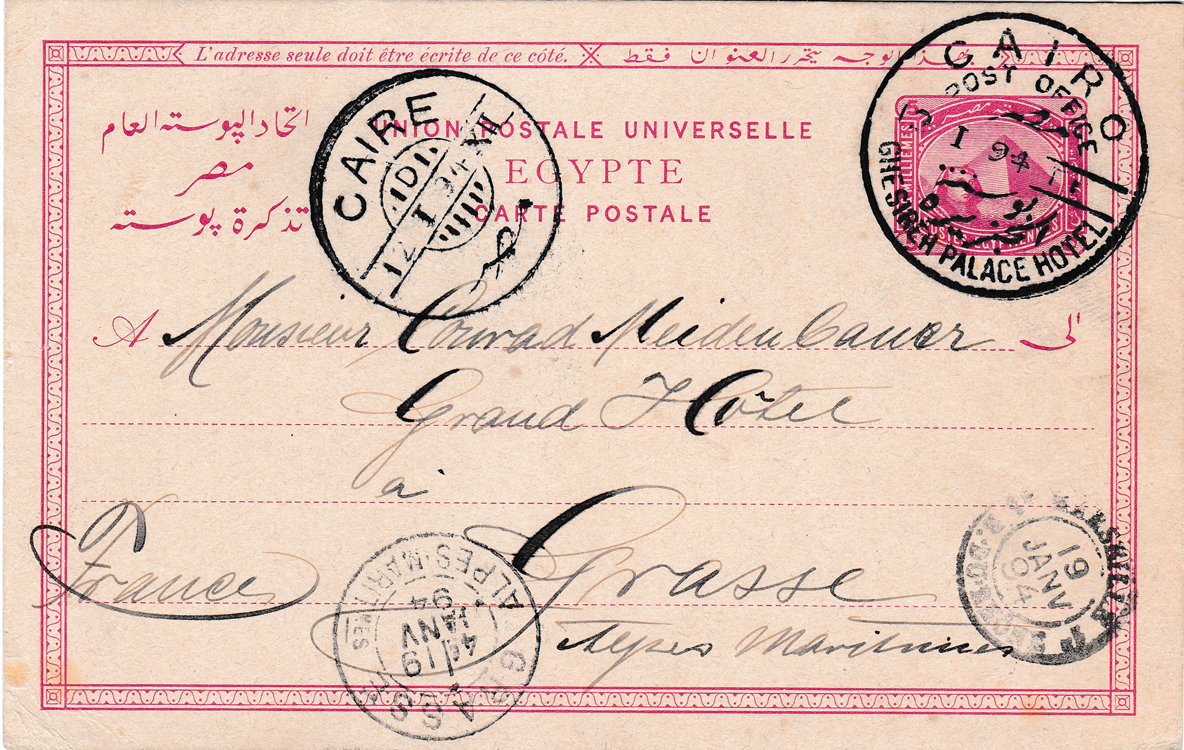 L'adresse seule doit être écrite de ce côté.
اتحاد البوسته العام
مصر
تذكرة بوسته
UNION POSTALE UNIVERSELLE
EGYPTE
CARTE POSTALE
CAIRE
12 I 94 XII
D
CAIRO
POST OFFICE
I 94
GHESIREH PALACE HOTEL
A Monsieur Conrad Meidenbauer الى
Grand Hôtel
à
Grasse
France
Alpes Maritimes
GRASSE
ALPES-MARITIMES
19
JANV
94
MARSEILLE
19
JANV
94